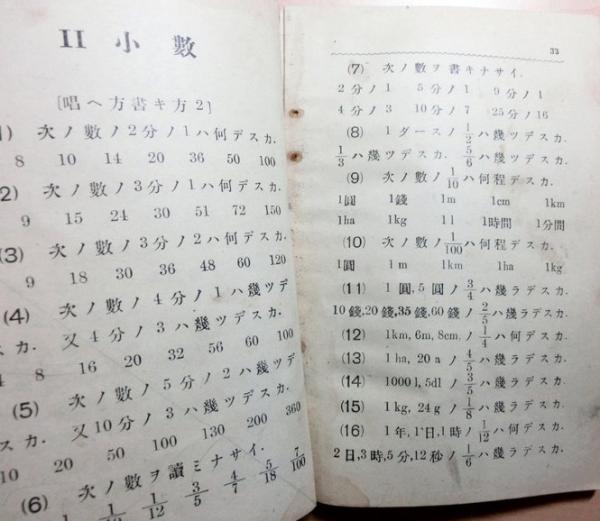 II 小數
[唱ヘ方書キ方2]
1) 次ノ數ノ2分ノ1ハ何デスカ.
8 10 14 20 36 50 100
2) 次ノ數ノ3分ノ1ハ何デスカ.
9 15 24 30 51 72 150
(3) 次ノ數ノ3分ノ2ハ何デスカ.
9 18 30 36 48 60 120
(4) 次ノ數ノ4分ノ1ハ幾ツデ
スカ. 又4分ノ3ハ幾ツデスカ.
4 8 16 20 32 56 60 100
(5) 次ノ數ノ5分ノ2ハ幾ツデ
スカ. 又10分ノ3ハ幾ツデスカ.
10 20 50 100 130 200 360
(6) 次ノ數ヲ讀ミナサイ.
1/12 3/5 4/7 5/18 7/100
33
(7) 次ノ數ヲ書キナサイ.
2分ノ1 5分ノ1 9分ノ1
4分ノ3 10分ノ7 25分ノ16
(8) 1ダースノ1/2ハ幾ツデスカ.
1/3ハ幾ツデスカ. 5/6ハ幾ツデスカ.
(9) 次ノ數ノ1/10ハ何程デスカ.
1圓 1錢 1m 1cm 1km
1ha 1kg 1l 1時間 1分間
(10) 次ノ數ノ1/100ハ何程デスカ.
1圓 1m 1km 1ha 1kg
(11) 1圓,5圓ノ3/4ハ幾ラデスカ.
10錢,20錢,35錢,60錢ノ2/5ハ幾ラデスカ.
(12) 1km, 6m, 8cm,ノ1/4ハ何デスカ.
(13) 1ha, 20aノ4/5ハ幾ラデスカ.
(14) 1000l, 5dlノ3/5ハ幾ラデスカ.
(15) 1kg, 24gノ1/8ハ幾ラデスカ.
(16) 1年,1日,1時ノ1/12ハ何デスカ.
2日,3時,5分,12秒ノ1/6ハ幾ラデスカ.